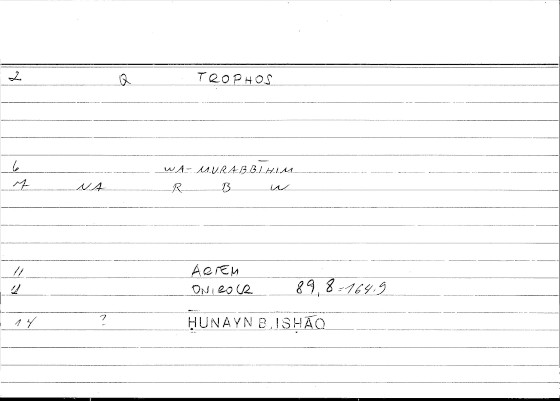 2 Q TROPHOS
6 WA-MURABBĪHIM
7 NA R B W
11 ARTEM
12 ONIROCR 89,8=164.9
14 ? ḤUNAYN B. ISḤĀQ